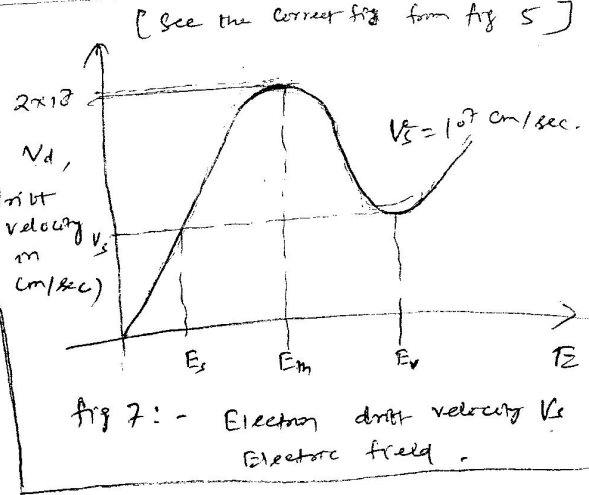 [ See the correct fig from fig 5 ]
2×10⁷
Vs = 10⁷ cm/sec.
Vd,
drift
velocity
in
cm/sec)
Vs
Es
Em
Ev
E
fig 7:- Electron drift velocity Vs
Electric field.